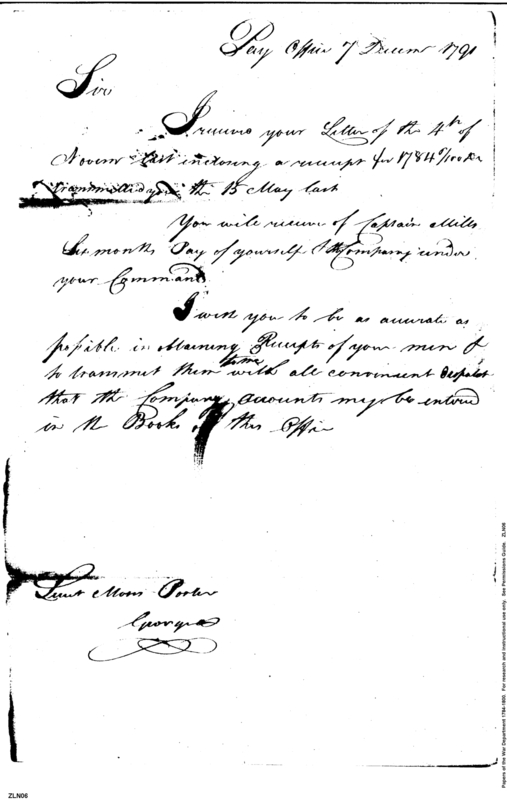 Pay Office 7 Decemr 1791
Sir
I received your Letter of the 4th of
Novemr last inclosing a receipt for 1784
transmitted you the 15 May last
You will receive of Captain Mills
Six months Pay of yourself & the Company under
your Command
I wish you to be as accurate as
possible in obtaining Receipts of your men &
to transmit them to me with all convenient despatch
that the Company accounts may be entered
in the Books of this Office
Lieut Moses Porter
Georgia
Papers of the War Department 1784-1800. For research and instructional use only. See Permissions Guide. ZLN06
ZLN06